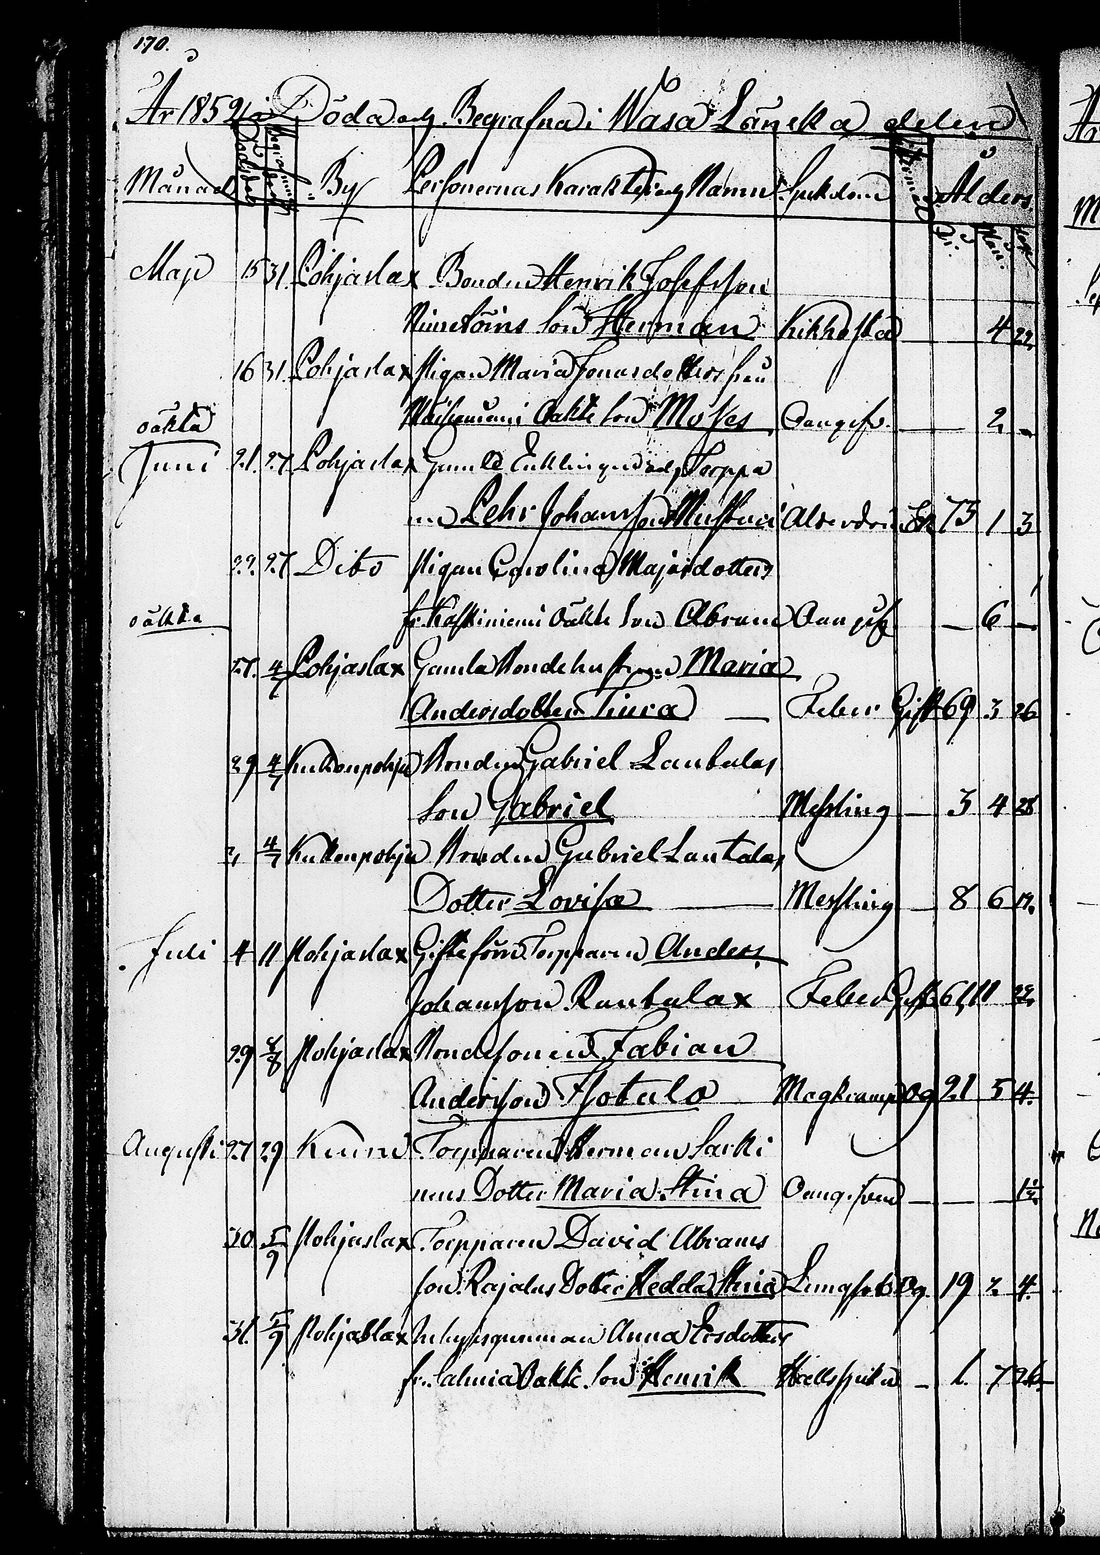 170.
År 1852 Döda och Begrafna i Wasa Länska delen
Månad By Personernas Karakter och Namn Sjukdom Ålder
År Mån.
Maj 15 31 Pohjaslax Bonden Henrik Josefsson
Son Herman Kikhosta 4 22
16 31 Pohjaslax Pigan Maria Jonasdotters från
oäkta son Moses Oangifv. — 2 —
oäkta
Juni 21 27 Pohjaslax Gamle Enklingen och Torppa
ren Pehr Johansson Ålderdom 73 1 3
22 27 Dito Pigan Carolina Majasdotters
oäkta fr. Koskiniemi Oäkta Son Abram Oangif — 6 —
27 4/7 Pohjaslax Gamla Bondehustrun Maria
Andersdotter — Feber Gift 69 3 26
29 4/7 Kukkonpohja Bonden Gabriel Lautalas
Son Gabriel Messling — 3 4 28
4/7 Kukkonpohja Bonden Gabriel Lautalas
Dotter Lovisa — Messling — 8 6
Juli 4 11 Pohjaslax Gifte Torpparen Anders
Johansson Rautalax Feber Gift 61 11 22
29 8/8 Pohjaslax Bondesonen Fabian
Andersson Magkramp Og 21 5 4
Augusti 27 29 Torpparen Herman Sarki
nens Dotter Maria Stina Oangifven — —
30 5/9 Pohjaslax Torpparen David Abrams
son Rajalas Dotter Hedda Stina Og 19 2 4
31 5/9 Pohjaslax Inhysesqvinnan Anna Ersdotters
fr. Oäkta Son Henrik — 1 7 26